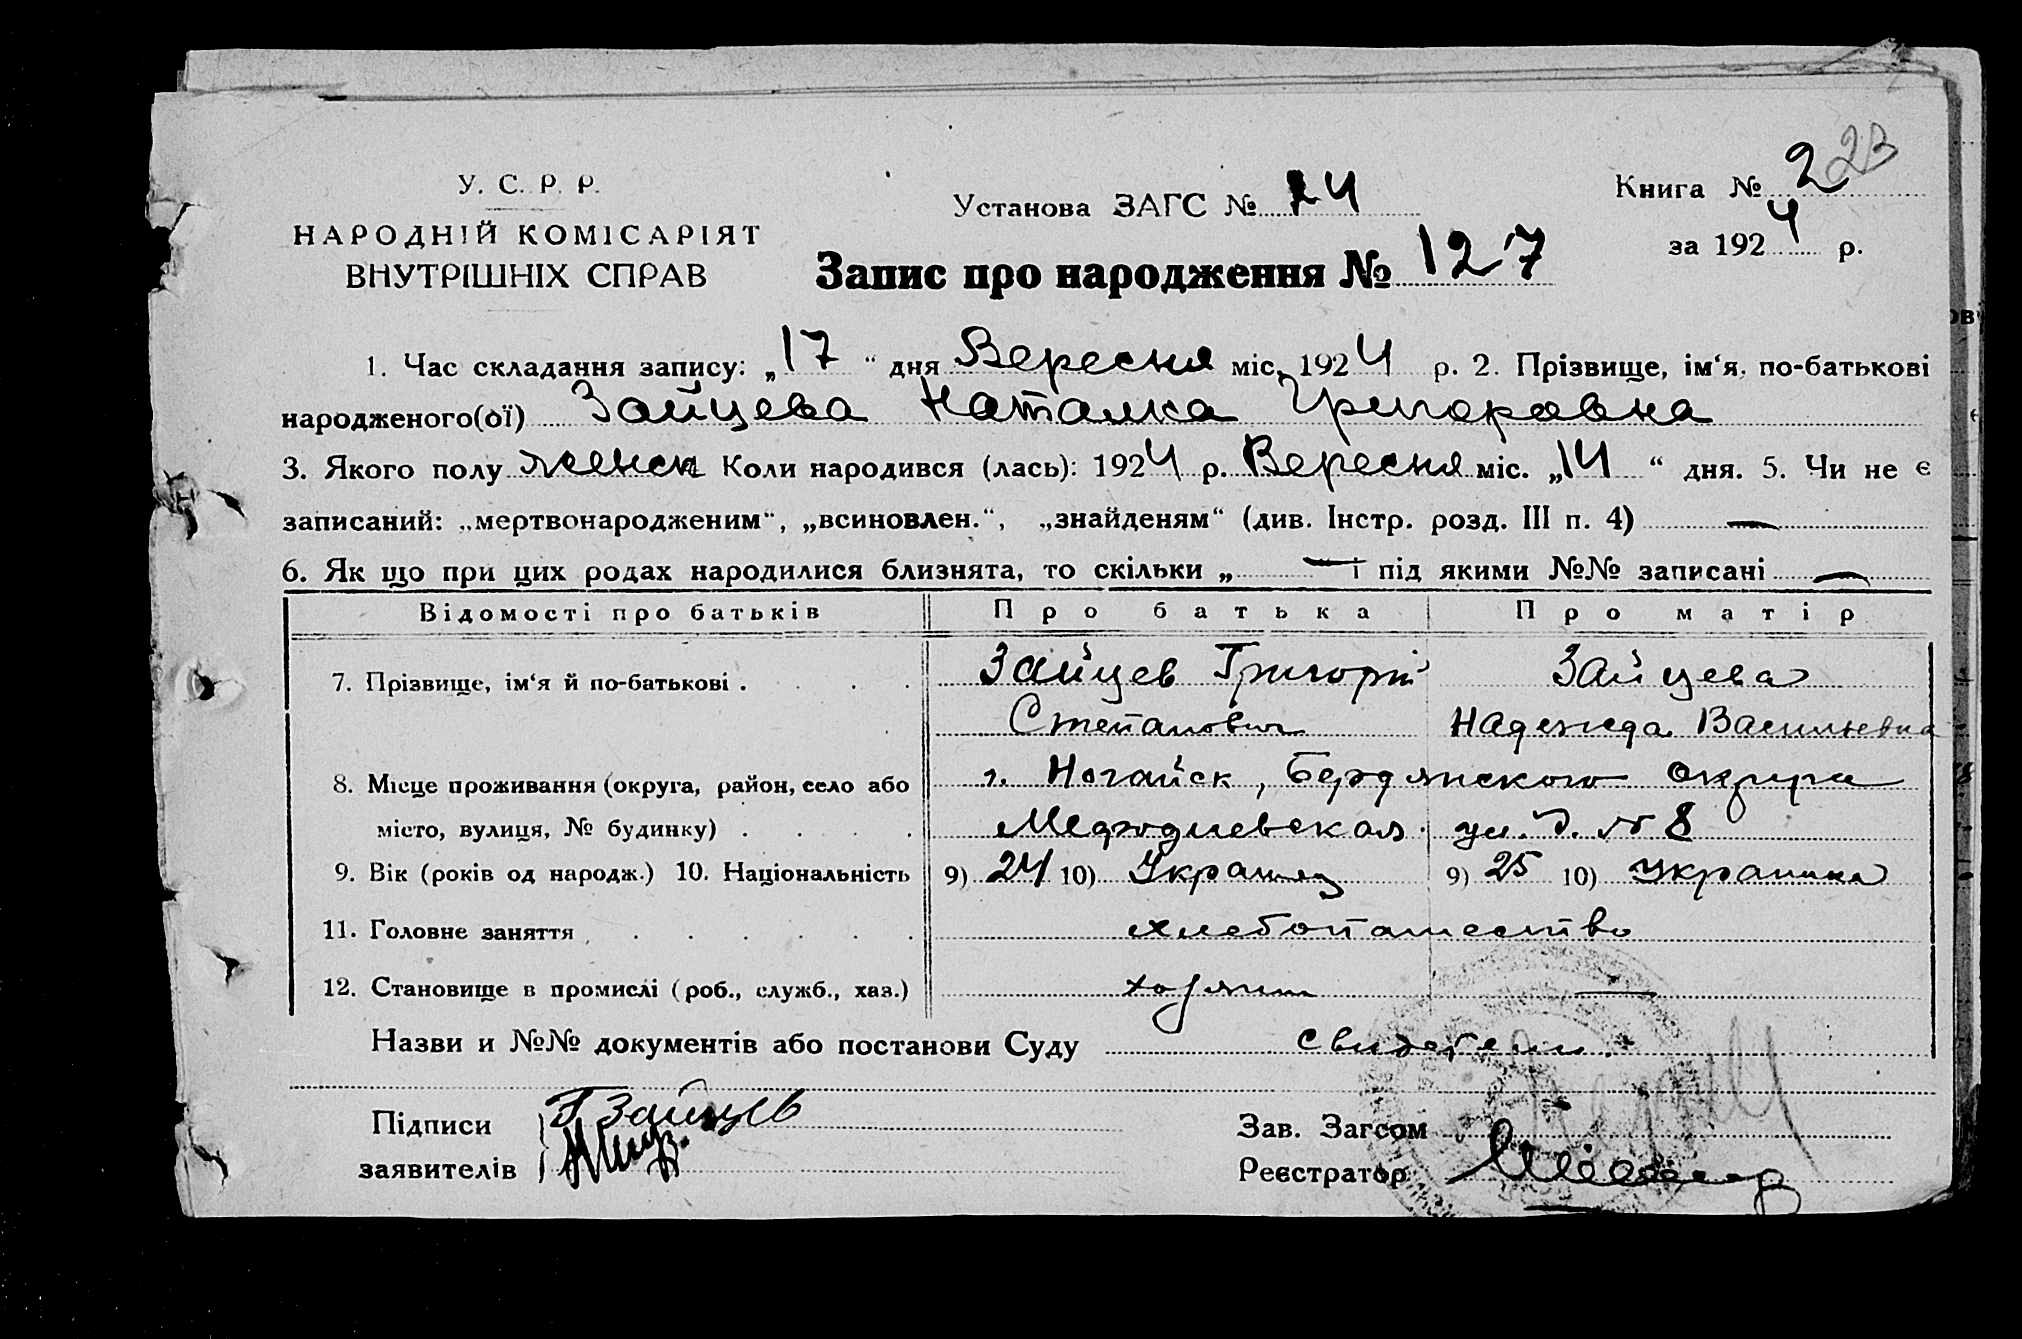 223
У. С. Р. Р.
Установа ЗАГС № 24
Книга № 2
НАРОДНІЙ КОМІСАРІЯТ
за 1924 р.
ВНУТРІШНІХ СПРАВ
Запис про народження № 127
1. Час складання запису: „17“ дня Вересня міс. 1924 р. 2. Прізвище, ім‘я, по-батькові
народженого(ої) Зайцева Наталка Григоровна
3. Якого полу женск Коли народився (лась): 1924 р. Вересня міс. „14“ дня. 5. Чи не є
записаний: „мертвонародженим“, „всиновлен.“, „знайденям“ (див. Інстр. розд. III п. 4) —
6. Як що при цих родах народилися близнята, то скільки „ — і під якими №№ записані —
Відомості про батьків Про батька Про матір
7. Прізвище, ім‘я й по-батькові . Зайцев Григорій Зайцева
Степанович Надежда Васильевна
8. Місце проживання (округа, район, село або г. Ногайск, Бердянского округа
місто, вулиця, № будинку) Мефодиевская ул. д. № 8
9. Вік (років од народж.) 10. Національність 9) 24 10) Украинец 9) 25 10) Украинка
11. Головне заняття хлебопашество
12. Становище в промислі (роб., служб., хаз.) хозяин —
Назви и №№ документів або постанови Суду свидетели.
Підписи Г Зайцев
Зав. Загсом
заявителів
Реєстратор